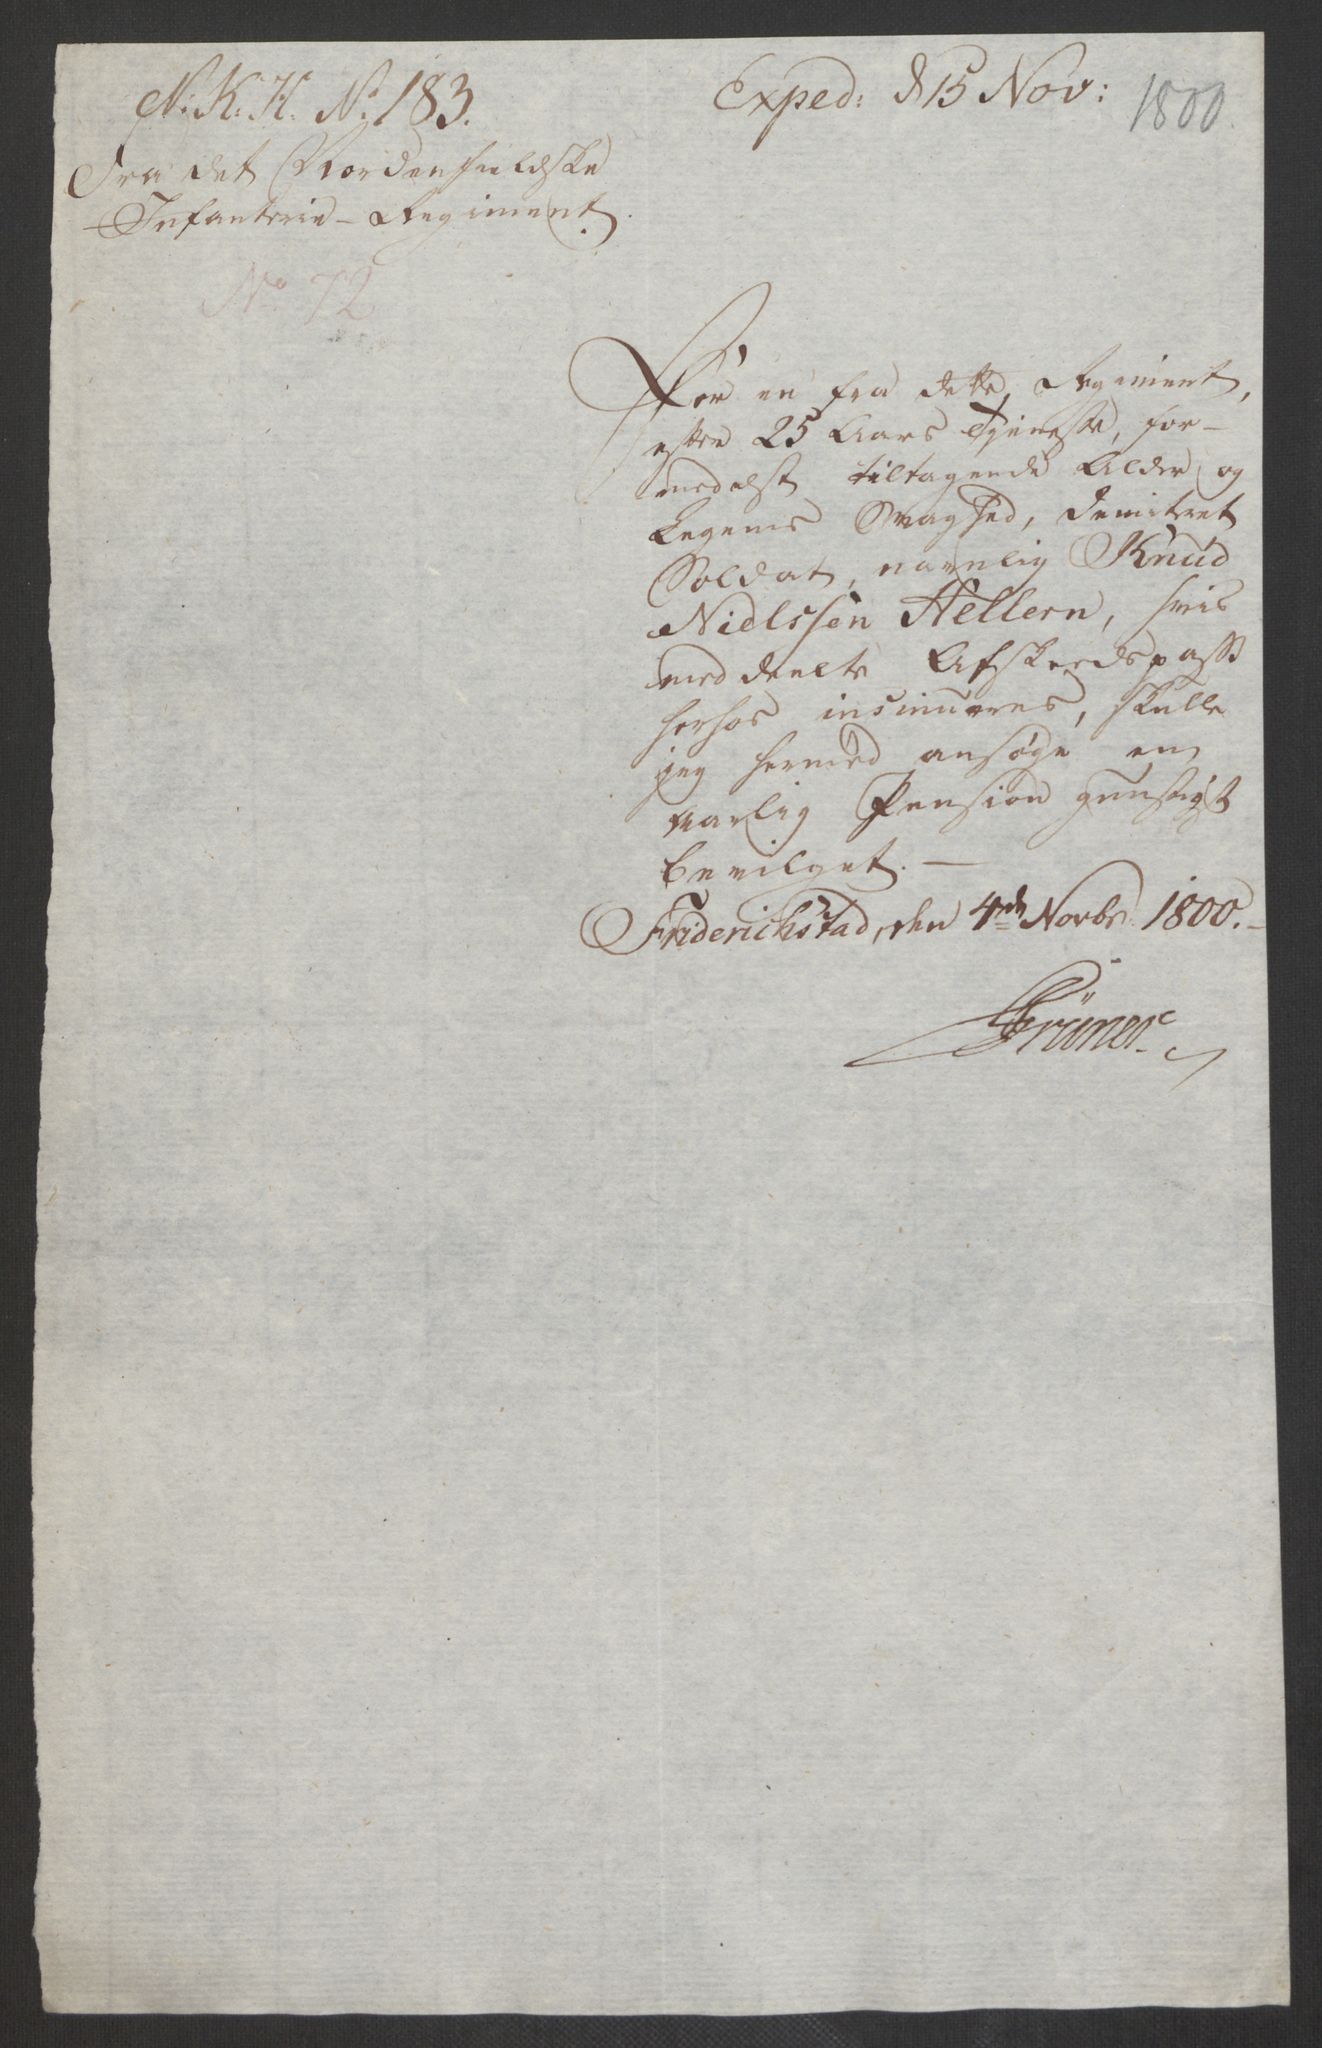 N. K. K. No 183.
Exped: d 15 Nov: 1800
Fra det Nordenfieldske
Infanterie-Regiment.
No 72
For en fra dette Regiment,
efter 25 Aars Tjeneste, for-
medelst tiltagende Alder og
Legems Svaghed, demitteret
Soldat, navnlig Knud
Nielssen Hellern, hvis
meddeelte Afskeedspass
herhos insinueres, skulle
jeg hermed ansøge en
aarlig Pension gunstigst
bevilget. —
Friderichstad, den 4de Novbr 1800. –
Grüner